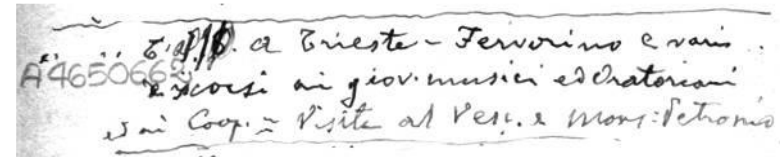 a Trieste - Fervorino e varii
A4650662 discorsi ai giov. musici ed Oratoriani
ed ai Coop. - Visita al Vesc. e Mons: Petronio